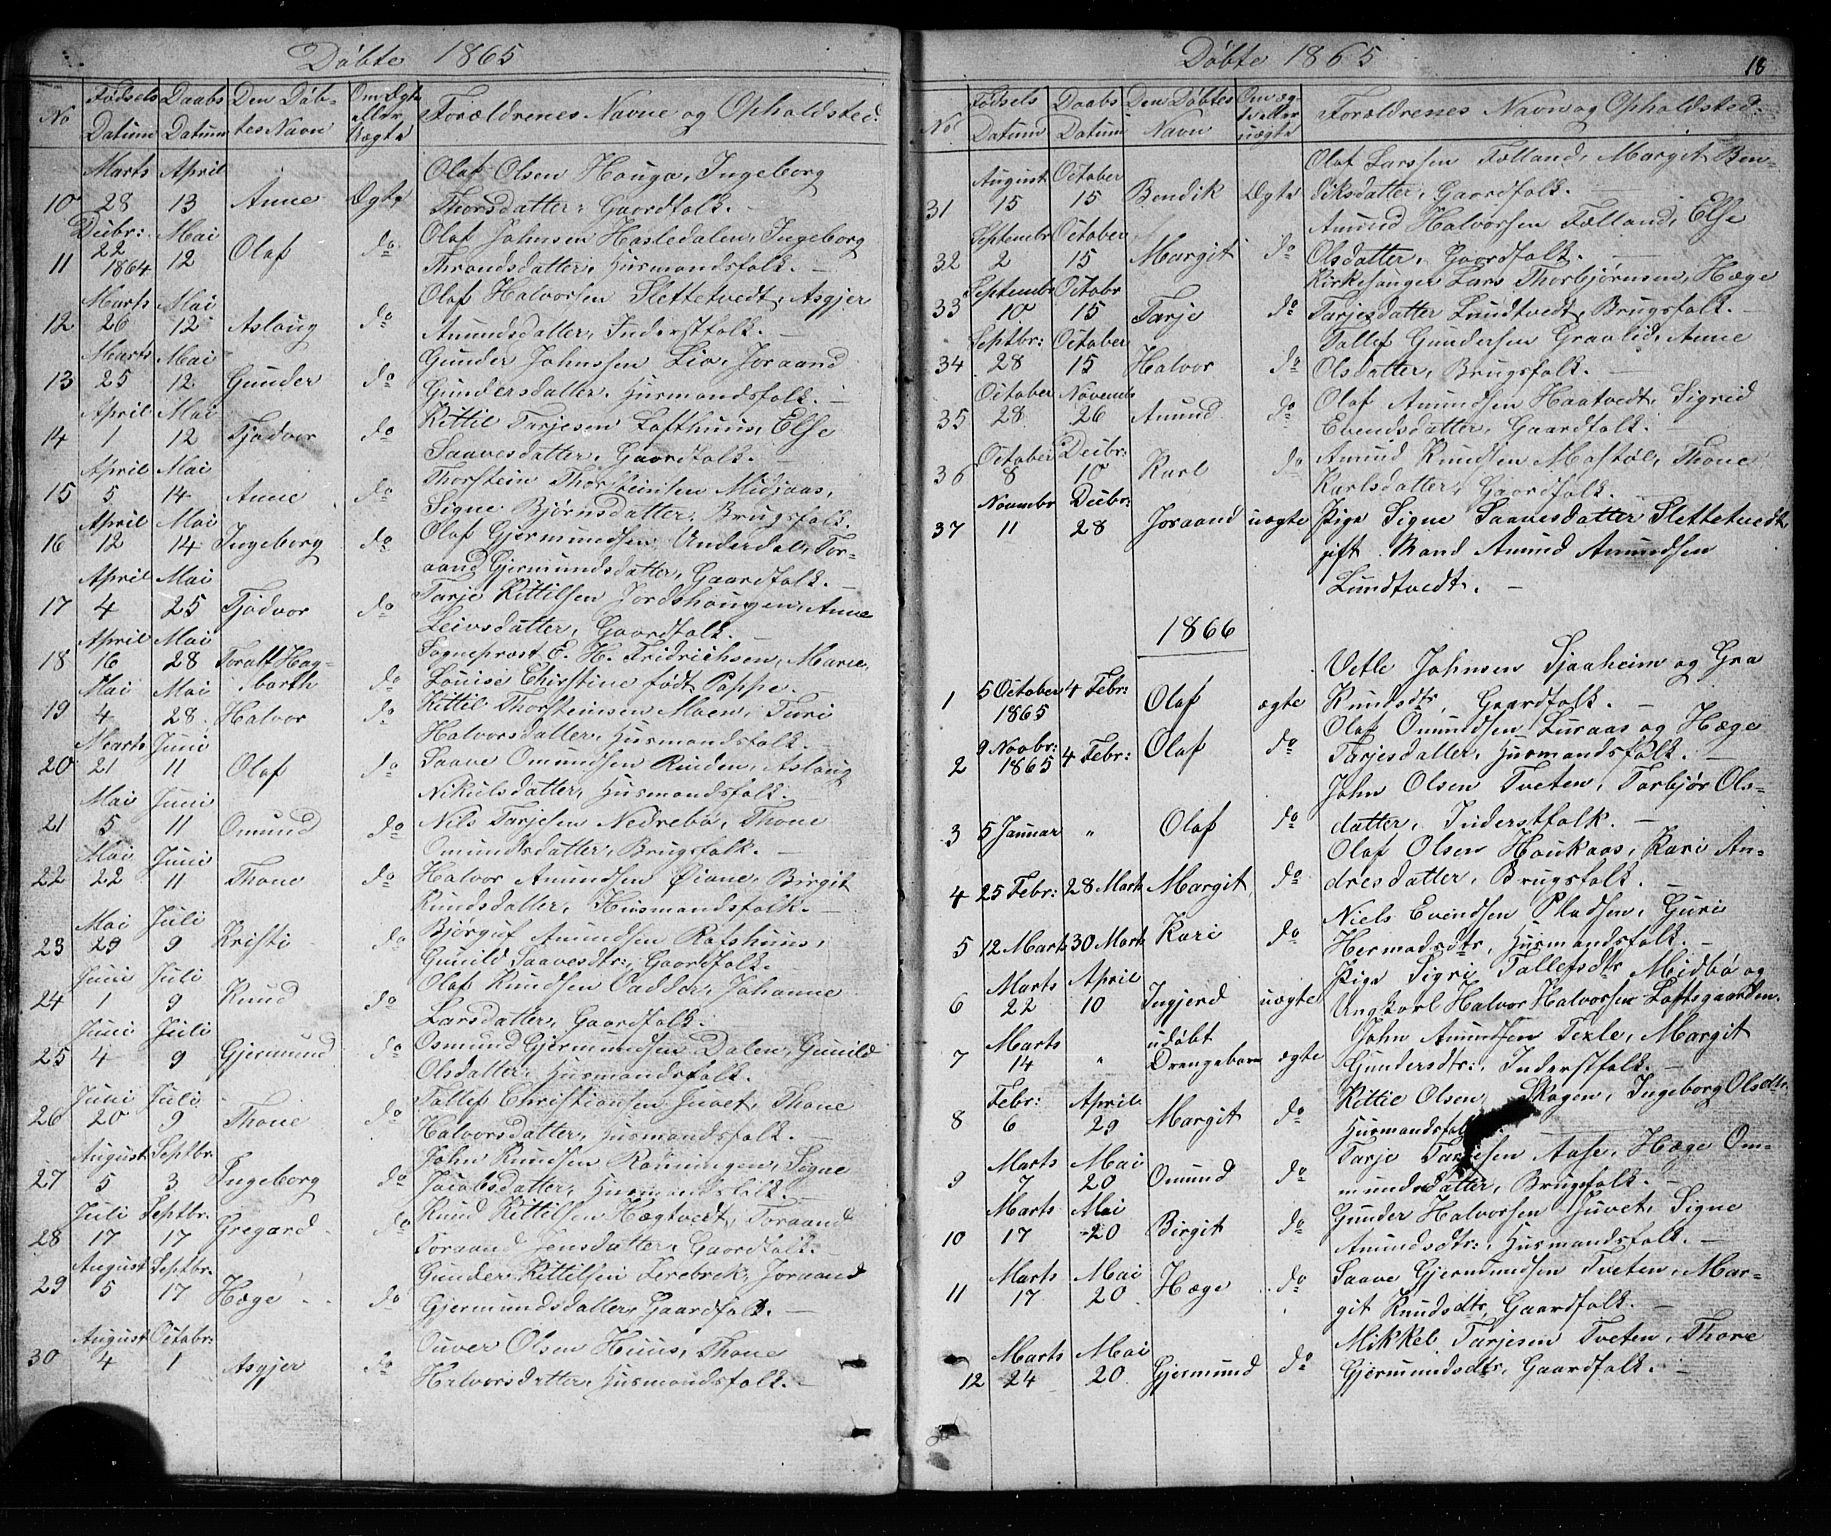 Döbte 1865
No
Fødsels Datum
Daabs Datum
Den Døbtes Navn
Om Ægte eller Uægte
Forældrenes Navne og Opholdsted.
10 Marts 28 April 13 Anne Ægte Olaf Olsen Houga, Ingeborg
Thorsdatter, Gaardfolk. —
11 Decbr: 22 1864 Mai 12 Olaf do Olaf Johnsen Hasledalen, Ingeborg
Throndsdatter, Husmandsfolk. —
12 Marts 26 Mai 12 Aslaug do Olaf Halvorsen Slettetvedt, Asgjer
Amundsdatter, Inderstfolk. —
13 Marts 25 Mai 12 Gunder do Gunder Johnssen Lio, Joraand
Gundersdatter, Husmandsfolk. —
14 April 1 Mai 12 Tjodvor do Kittil Tarjesen Lofthuus, Else
Saavesdatter, Gaardfolk. —
15 April 5 Mai 14 Anne do Thorstein Thorsteinsen Midjaas,
Signe Bjørnsdatter, Brugsfolk.
16 April 12 Mai 14 Ingeborg do Olaf Gjermundsen Underdal, Tor-
aand Gjermundsdatter, Gaardfolk. —
17 April 4 Mai 25 Tjodvor do Tarje Kittilsen Jordshougen, Anne
Leivsdatter, Gaardfolk. —
18 April 16 Mai 28 Toralf Hag-
barth do Sogneprest E. H. Fridrichsen, Marie,
Louise Christine født Poppe. —
19 Mai 4 Mai 28 Halvor do Kittil Thorsteinsen Moen, Turi
Halvorsdatter, Husmandsfolk. —
20 Marts 21 Juni 11 Olaf do Saave Omundsen Rinden, Aslaug
Nikulsdatter, Husmandsfolk. —
21 Mai 5 Juni 11 Omund do Nils Tarjesen Nedrebø, Thone
Omundsdatter, Brugsfolk. —
22 Mai 22 Juni 11 Thone do Halvor Amundsen Øiane, Birgit
Knudsdatter, Husmandsfolk. —
23 Mai 29 Juli 9 Kristi do Bjørguf Amundsen Rofshuus,
Gunild Saavesdtr:, Gaardfolk.
24 Juni 1 Juli 9 Knud do Olaf Knudsen Vadder, Johanne
Larsdatter, Gaardfolk.
25 Juni 4 Juli 9 Gjermund do Osmund Gjermundsen Dalen, Gunild
Olsdatter, Husmandsfolk.
26 Juni 20 Juli 9 Thone do Tallef Christiansen Juvet, Thone
Halvorsdatter, Husmandsfolk. —
27 August 5 Septbr. 3 Ingeborg do John Knudsen Rønningen, Signe
Jacobsdatter, Husmandsfolk. —
28 Juli 17 Septbr. 17 Gregard do Knud Kittilsen Hægtvedt, Toraand
Jensdatter, Gaardfolk.
29 August 5 Septbr. 17 Hæge do Gunder Kittilsen Lerebrek, Joraand
Gjermundsdatter, Gaardfolk. —
30 August 4 Octobr: 1 Asgjer do Ouver Olsen Huus, Thone
Halvorsdatter, Husmandsfolk. —
Döbte 1865
18
No
Fødsels Datum
Daabs Datum
Den Døbtes Navn
Om æg- te eller uægte
Forældrenes Navn og Opholdsted.
31 August 15 October 15 Bendik Ægte Olaf Larssen Fælland, Margit Ben-
diksdatter, Gaardfolk. —
32 Septembr 2 October 15 Margit do Amund Halvorsen Fælland, Else
Olsdatter, Gaardfolk. —
33 Septembr 10 Octobr 15 Tarje do Kirkesanger Lars Thorbjørnsen, Hæge
Tarjesdatter Lundtvedt, Brugsfolk. —
34 Septbr: 28 October 15 Halvor do Tallef Gundersen Graalid, Anne
Olsdatter, Brugsfolk. —
35 October 28 Novemb 26 Amund do Olaf Amundsen Haatvedt, Sigrid
Evendsdatter, Gaardfolk. —
36 October 8 Decbr: 10 Karl do Amund Knudsen Mostøl, Thone
Karlsdatter, Gaardfolk.
37 Novembr 11 Decbr: 28 Joraand uægte Pige Signe Saavesdatter Slettetvedt,
gift Mand Amund Amundsen
Lundtvedt. —
1866
1 5 October 1865 4 Febr: Olaf ægte Vetle Johnsen Sjaaheim og Gro
Knudsdtr, Gaardfolk. —
2 9 Novbr: 1865 4 Febr: Olaf do Olaf Omundsen Luraas og Hæge
Tarjesdatter, Husmandsfolk. —
3 5 Januar " Olaf do John Olsen Tveten, Torbjør Ols-
datter, Inderstfolk. —
4 25 Febr: 28 Mart Margit do Olaf Olsen Houkaas, Kari An-
dresdatter, Brugsfolk. —
5 12 Marts 30 Mart Kari do Niels Evindsen Pladsen, Guri
Hermodsdtr, Husmandsfolk. —
6 Marts 22 April 10 Ingjerd uægte Pige Sigri Tallefsdtr Midbø og
Ungkarl Halvor Halvorsen Loftsgaarden.
7 Marts 14 " udøbt Drengebarn ægte John Amundsen Texle, Margit
Gundersdtr:, Inderstfolk. —
8 Febr: 6 April 29 Margit do Kittil Olsen Skogen, Ingeborg Olsdtr.
Husmandsfolk
9 Marts 7 Mai 20 Omund do Tarje Tarjesen Aase, Hæge Om-
mundsdatter, Brugsfolk. —
10 Marts 17 Mai 20 Birgit do Gunder Halvorsen Juvet, Signe
Amundsdtr:, Husmandsfolk. —
11 Marts 17 Mai 20 Hæge do Saave Gjermundsen Tveten, Mar-
git Knudsdtr, Gaardfolk. —
12 Marts 24 Mai 20 Gjermund do Mikkel Tarjesen Tveten, Thone
Gjermundsdtr, Gaardfolk. —